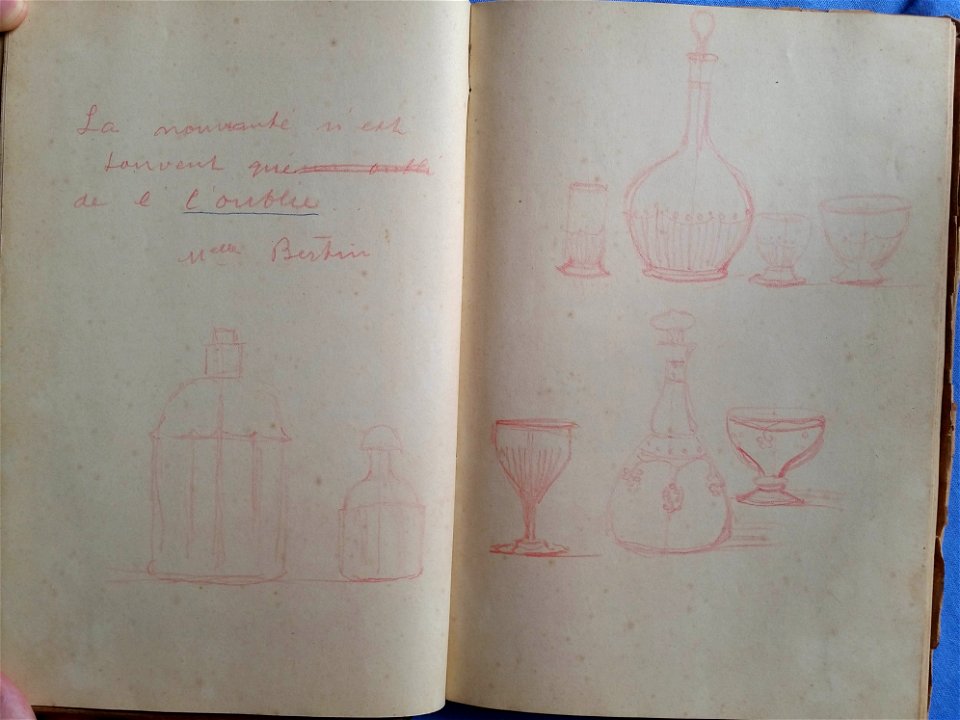 La nouvauté n'est
souvent que
de l l'oublie
Melle Bertin